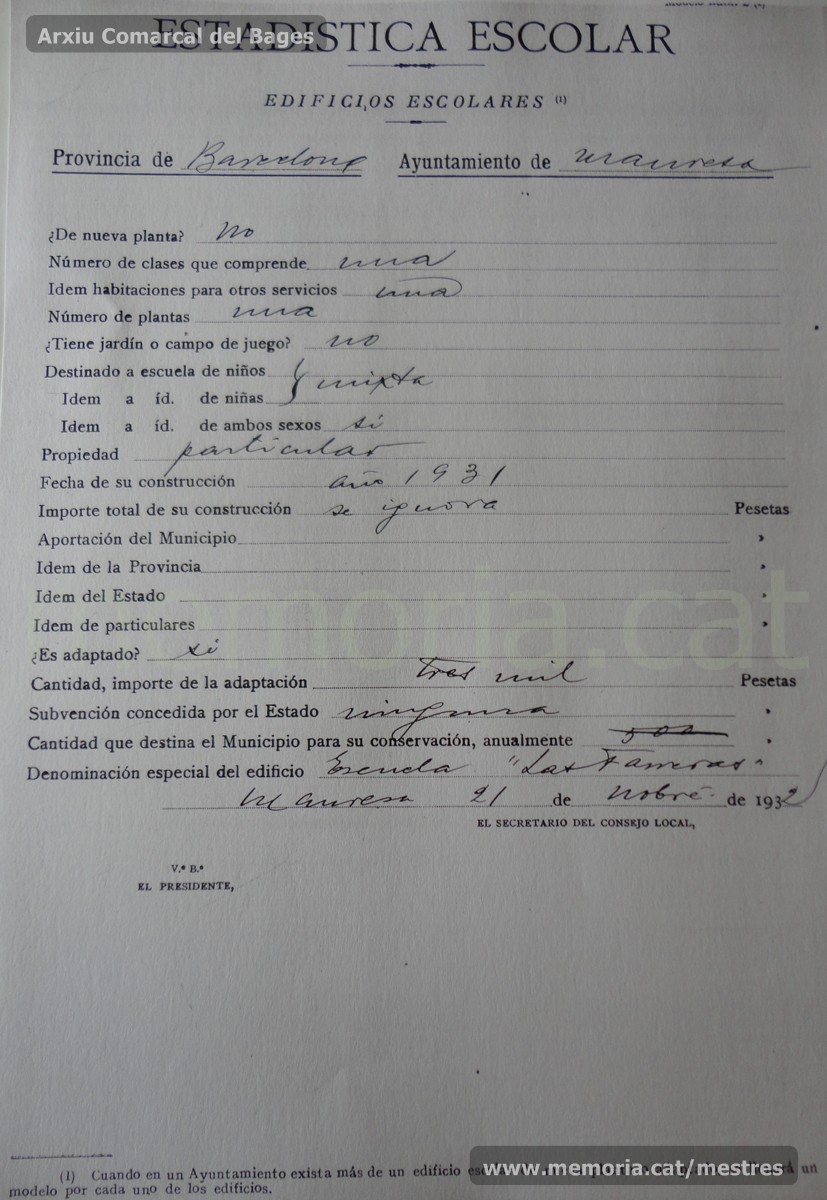 Arxiu Comarcal del Bages
ESTADISTICA ESCOLAR
EDIFICIOS ESCOLARES (1)
Provincia de Barcelona Ayuntamiento de Manresa
¿De nueva planta? No
Número de clases que comprende una
Idem habitaciones para otros servicios una
Número de plantas una
¿Tiene jardín o campo de juego? no
Destinado a escuela de niños
mixta
Idem a íd. de niñas
Idem a íd. de ambos sexos sí
Propiedad particular
Fecha de su construcción año 1931
Importe total de su construcción se ignora Pesetas
Aportación del Municipio »
Idem de la Provincia »
Idem del Estado »
Idem de particulares »
memoria.cat
¿Es adaptado? sí
Cantidad, importe de la adaptación Tres mil Pesetas
Subvención concedida por el Estado ninguna »
Cantidad que destina el Municipio para su conservación, anualmente 500 »
Denominación especial del edificio Escuela "Las Farreras"
Manresa 21 de Nobre de 1932
EL SECRETARIO DEL CONSEJO LOCAL,
V.º B.º
EL PRESIDENTE,
(1) Cuando en un Ayuntamiento exista más de un edificio un
modelo por cada uno de los edificios.
www.memoria.cat/mestres